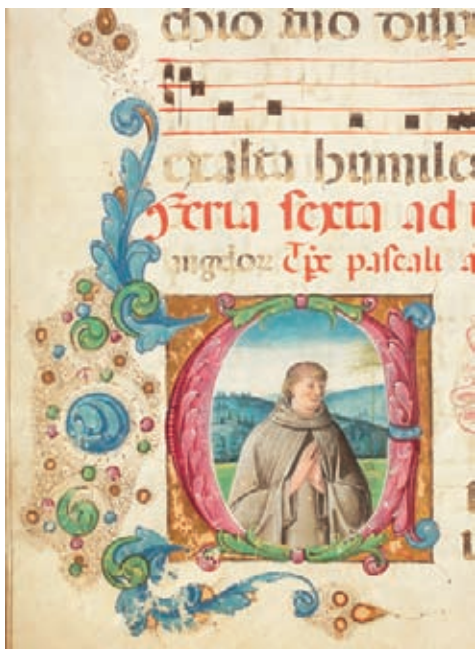 chio suo disp
exalta humiles
Feria sexta ad
angelor Tpe pascali a